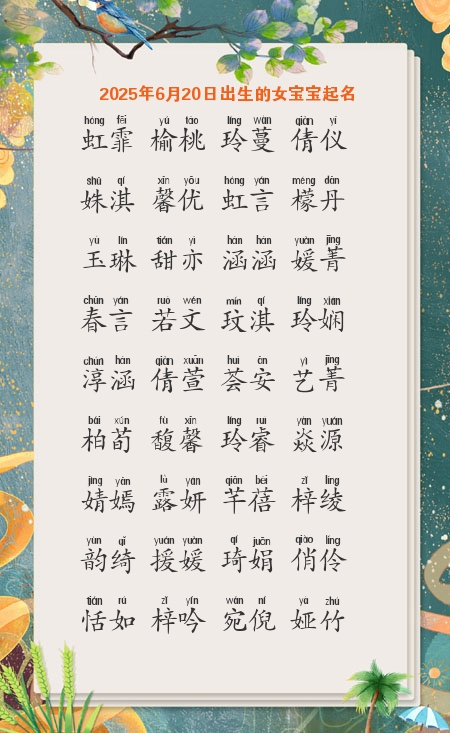 2025年6月20日出生的女宝宝起名
hóng fēi yú táo líng wàn qiàn yí
虹霏 榆桃 玲蔓 倩仪
shū qí xīn yōu hóng yán méng dān
姝淇 馨优 虹言 檬丹
yù lín tián yì hán hán yuàn jīng
玉琳 甜亦 涵涵 媛菁
chūn yán ruò wén mín qí líng xián
春言 若文 玟淇 玲娴
chún hán qiàn xuān huì ān yì jīng
淳涵 倩萱 荟安 艺菁
bǎi xún fù xīn líng ruì yàn yuán
柏荀 馥馨 玲睿 焱源
jìng yān lù yán qiān bèi zǐ líng
婧嫣 露妍 芊蓓 梓绫
yùn qǐ yuán yuán qí juān qiào líng
韵绮 援媛 琦娟 俏伶
tián rú zǐ yín wǎn ní yà zhú
恬如 梓吟 宛倪 娅竹